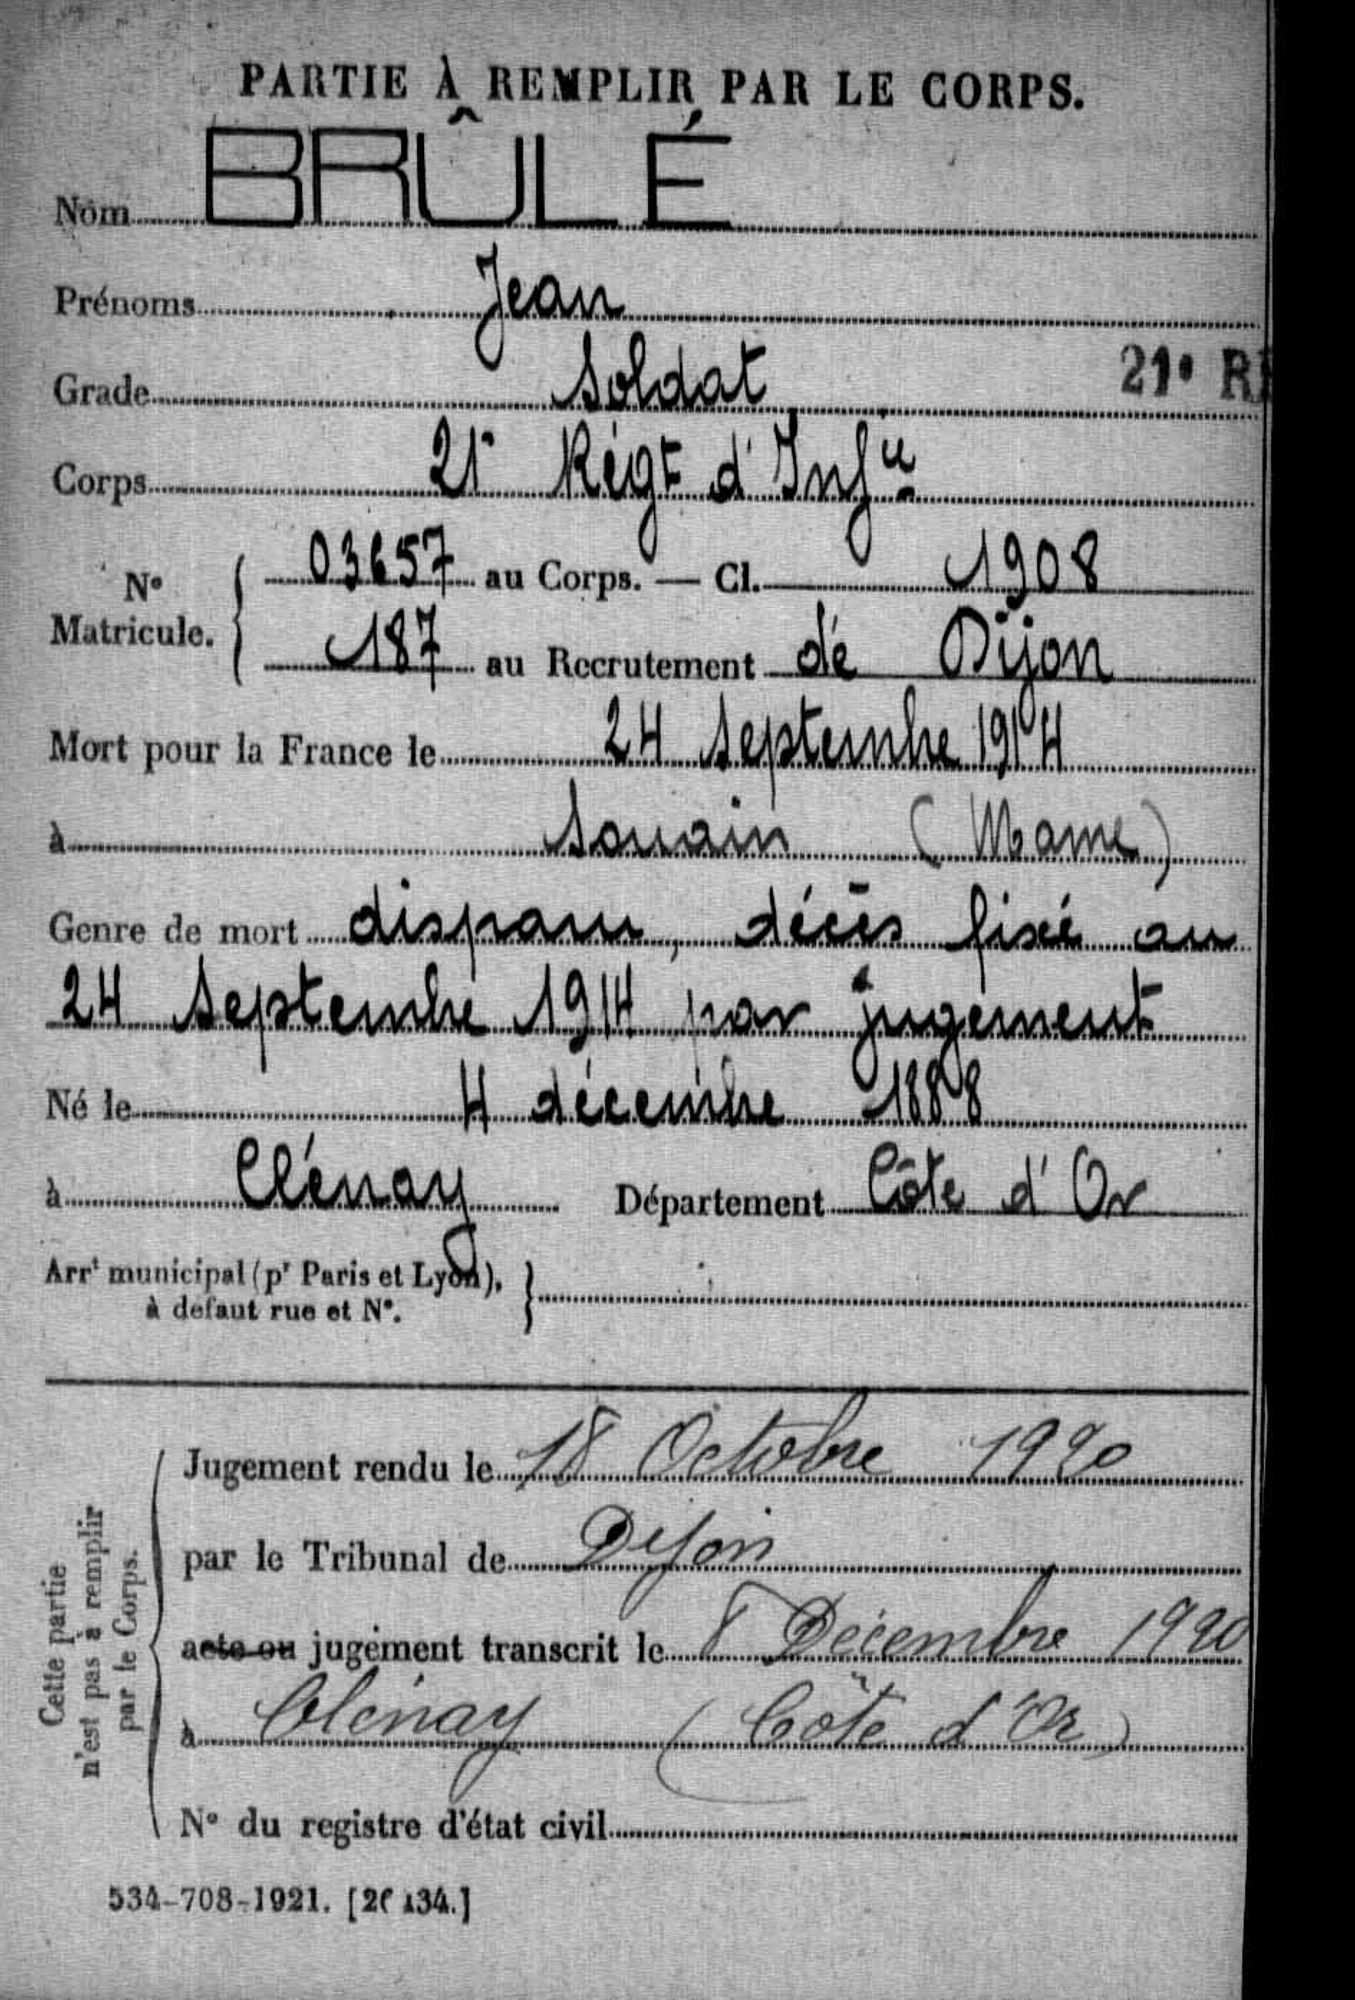 PARTIE À REMPLIR PAR LE CORPS.
Nom BRÛLÉ
Prénoms Jean
Grade Soldat
21e R
Corps 21e Régt d'Infie
No Matricule. 03657 au Corps. — Cl. 1908
187 au Recrutement de Dijon
Mort pour la France le 24 Septembre 1914
à Souain (Marne)
Genre de mort disparu, décès fixé au
24 Septembre 1914 par jugement
Né le 4 décembre 1888
à Clénay Département Côte d'Or
Arrt municipal (pr Paris et Lyon),
à defaut rue et No.
Cette partie
n'est pas à remplir
par le Corps.
Jugement rendu le 18 Octobre 1920
par le Tribunal de Dijon
acte ou jugement transcrit le 8 Décembre 1920
à Clénay (Côte d'Or)
No du registre d'état civil
534-708-1921. [26134.]